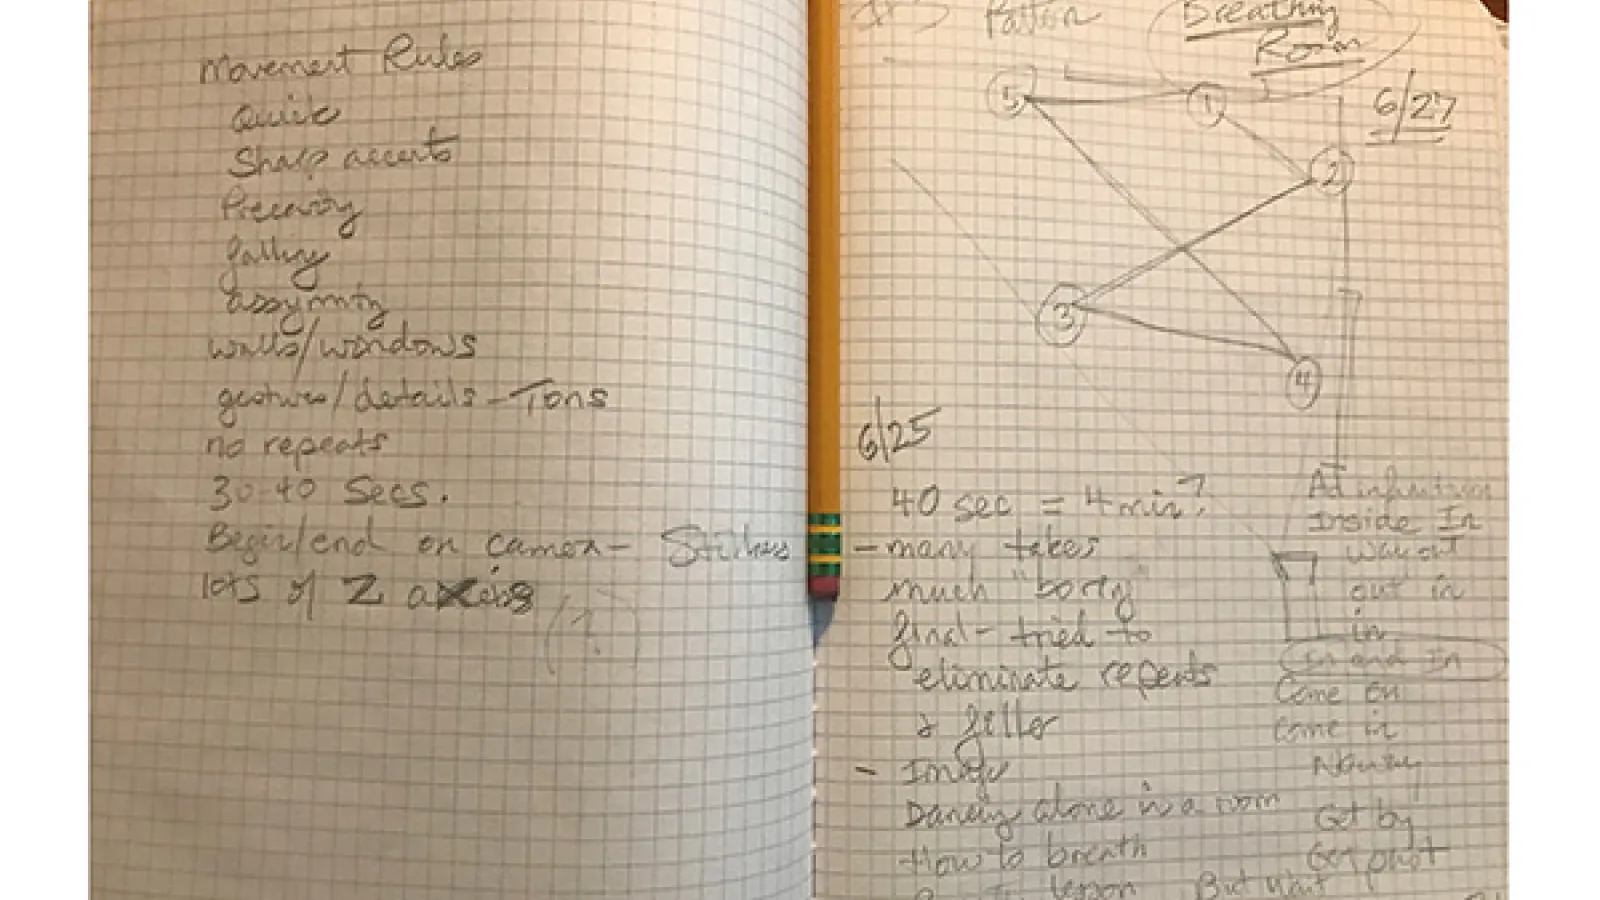 Movement Rules
Quick
Sharp accents
Precarity
falling
assymmty
walls/windows
gestures/details - Tons
no repeats
30-40 Secs.
Begin/end on camera - Stillness
lots of Z axis
(?)
Pattern
Breathing
Room
6/27
5
1
2
3
4
6/25
40 sec = 4 min?
- many takes
much "borty"
final - tried to
eliminate repeats
& filler
- Image
Dancing alone in a room
How to breath
lesson
But Wait
Ad infinitum
Inside In
Way out
out in
in
In and In
Come on
Come in
No way
Get by
Get past